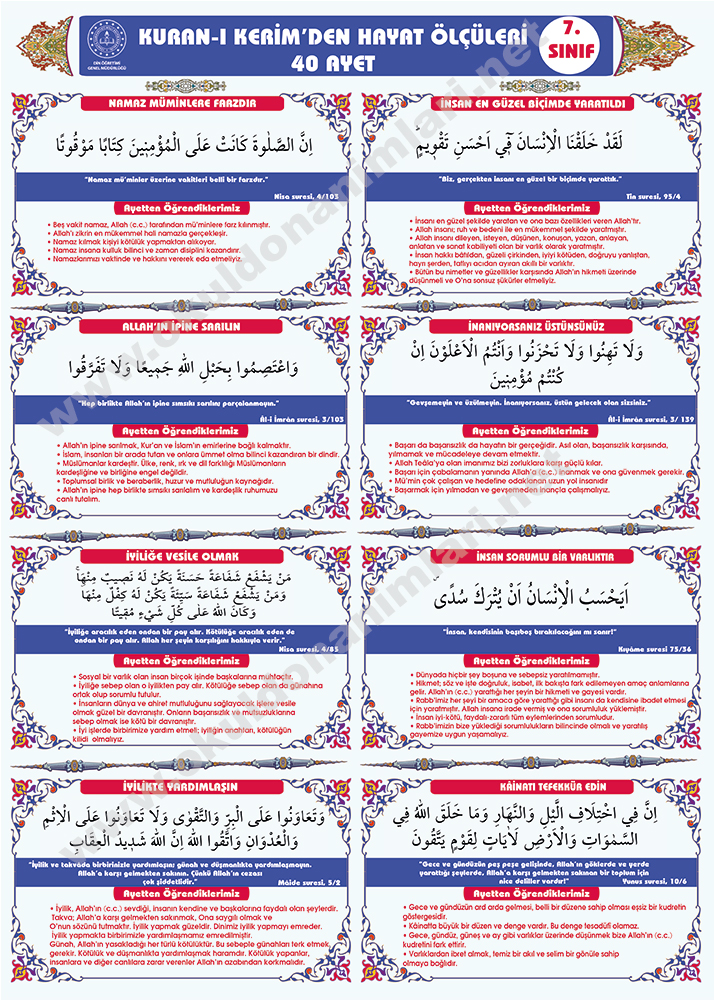 DİN ÖĞRETİMİ
GENEL MÜDÜRLÜĞÜ
KURAN-I KERİM'DEN HAYAT ÖLÇÜLERİ
40 AYET
7.
SINIF
NAMAZ MÜMİNLERE FARZDIR
اِنَّ الصَّلٰوةَ كَانَتْ عَلَى الْمُؤْمِنٖينَ كِتَابًا مَوْقُوتًا
"Namaz mü'minler üzerine vakitleri belli bir farzdır."
Nisa suresi, 4/103
Ayetten Öğrendiklerimiz
• Beş vakit namaz, Allah (c.c.) tarafından mü'minlere farz kılınmıştır.
• Allah'ı zikrin en mükemmel hali namazla gerçekleşir.
• Namaz kılmak kişiyi kötülük yapmaktan alıkoyar.
• Namaz insana kulluk bilinci ve zaman disiplini kazandırır.
• Namazlarımızı vaktinde ve hakkını vererek eda etmeliyiz.
İNSAN EN GÜZEL BİÇİMDE YARATILDI
لَقَدْ خَلَقْنَا الْاِنْسَانَ فٖٓي اَحْسَنِ تَقْوٖيمٍۘ
"Biz, gerçekten insanı en güzel bir biçimde yarattık."
Tin suresi, 95/4
Ayetten Öğrendiklerimiz
• İnsanı en güzel şekilde yaratan ve ona bazı özellikleri veren Allah'tır.
• Allah insanı; ruh ve bedeni ile en mükemmel şekilde yaratmıştır.
• Allah insanı dileyen, isteyen, düşünen, konuşan, yazan, anlayan,
anlatan ve sanat kabiliyeti olan bir varlık olarak yaratmıştır.
• İnsan hakkı bâtıldan, güzeli çirkinden, iyiyi kötüden, doğruyu yanlıştan,
hayrı şerden, tatlıyı acıdan ayıran akıllı bir varlıktır.
• Bütün bu nimetler ve güzellikler karşısında Allah'ın hikmeti üzerinde
düşünmeli ve O'na sonsuz şükürler etmeliyiz.
ALLAH'IN İPİNE SARILIN
وَاعْتَصِمُوا بِحَبْلِ اللّٰهِ جَمٖيعًا وَلَا تَفَرَّقُوا
"Hep birlikte Allah'ın ipine sımsıkı sarılın; parçalanmayın."
Âl-i İmrân suresi, 3/103
Ayetten Öğrendiklerimiz
• Allah'ın ipine sarılmak, Kur'an ve İslam'ın emirlerine bağlı kalmaktır.
• İslam, insanları bir arada tutan ve onlara ümmet olma bilinci kazandıran bir dindir.
• Müslümanlar kardeştir. Ülke, renk, ırk ve dil farklılığı Müslümanların
kardeşliğine ve birliğine engel değildir.
• Toplumsal birlik ve beraberlik, huzur ve mutluluğun kaynağıdır.
• Allah'ın ipine hep birlikte sımsıkı sarılalım ve kardeşlik ruhumuzu
canlı tutalım.
İNANIYORSANIZ ÜSTÜNSÜNÜZ
وَلَا تَهِنُوا وَلَا تَحْزَنُوا وَاَنْتُمُ الْاَعْلَوْنَ اِنْ
كُنْتُمْ مُؤْمِنٖينَ
"Gevşemeyin ve üzülmeyin. İnanıyorsanız, üstün gelecek olan sizsiniz."
Âl-i İmrân suresi, 3/ 139
Ayetten Öğrendiklerimiz
• Başarı da başarısızlık da hayatın bir gerçeğidir. Asıl olan, başarısızlık karşısında,
yılmamak ve mücadeleye devam etmektir.
• Allah Teâla'ya olan imanımız bizi zorluklara karşı güçlü kılar.
• Başarı için çabalamanın yanında Allah'a (c.c.) inanmak ve ona güvenmek gerekir.
• Mü'min çok çalışan ve hedefine odaklanan uzun yol insanıdır
• Başarmak için yılmadan ve gevşemeden inançla çalışmalıyız.
İYİLİĞE VESİLE OLMAK
مَنْ يَشْفَعْ شَفَاعَةً حَسَنَةً يَكُنْ لَهُ نَصٖيبٌ مِنْهَاۚ
وَمَنْ يَشْفَعْ شَفَاعَةً سَيِّئَةً يَكُنْ لَهُ كِفْلٌ مِنْهَاؕ
وَكَانَ اللّٰهُ عَلٰى كُلِّ شَيْءٍ مُقٖيتًا
"İyiliğe aracılık eden ondan bir pay alır. Kötülüğe aracılık eden de
ondan bir pay alır. Allah her şeyin karşılığını hakkıyla verir."
Nisa suresi, 4/85
Ayetten Öğrendiklerimiz
• Sosyal bir varlık olan insan birçok işinde başkalarına muhtaçtır.
• İyiliğe sebep olan o iyilikten pay alır. Kötülüğe sebep olan da günahına
ortak olup sorumlu tutulur.
• İnsanların dünya ve ahiret mutluluğunu sağlayacak işlere vesile
olmak güzel bir davranıştır. Onların başarısızlık ve mutsuzluklarına
sebep olmak ise kötü bir davranıştır.
• İyi işlerde birbirimize yardım etmeli; iyiliğin anahtarı, kötülüğün
kilidi olmalıyız.
İNSAN SORUMLU BİR VARLIKTIR
اَيَحْسَبُ الْاِنْسَانُ اَنْ يُتْرَكَ سُدًىۜ
"İnsan, kendisinin başıboş bırakılacağını mı sanır!"
Kıyâme suresi 75/36
Ayetten Öğrendiklerimiz
• Dünyada hiçbir şey boşuna ve sebepsiz yaratılmamıştır.
• Hikmet; söz ve işte doğruluk, isabet, ilk bakışta fark edilemeyen amaç anlamlarına
gelir. Allah'ın (c.c.) yarattığı her şeyin bir hikmeti ve gayesi vardır.
• Rabb'imiz her şeyi bir amaca göre yarattığı gibi insanı da kendisine ibadet etmesi
için yaratmıştır. Allah insana irade vermiş ve ona sorumluluk yüklemiştir.
• İnsan iyi-kötü, faydalı-zararlı tüm eylemlerinden sorumludur.
• Rabb'imizin bize yüklediği sorumlulukların bilincinde olmalı ve yaratılış
gayemize uygun yaşamalıyız.
İYİLİKTE YARDIMLAŞIN
وَتَعَاوَنُوا عَلَى الْبِرِّ وَالتَّقْوٰى وَلَا تَعَاوَنُوا عَلَى الْاِثْمِ
وَالْعُدْوَانِ وَاتَّقُوا اللّٰهَ اِنَّ اللّٰهَ شَدٖيدُ الْعِقَابِ
"İyilik ve takvada birbirinizle yardımlaşın; günah ve düşmanlıkta yardımlaşmayın.
Allah'a karşı gelmekten sakının. Çünkü Allah'ın cezası
çok şiddetlidir."
Mâide suresi, 5/2
Ayetten Öğrendiklerimiz
• İyilik, Allah'ın (c.c.) sevdiği, insanın kendine ve başkalarına faydalı olan şeylerdir.
Takva; Allah'a karşı gelmekten sakınmak, Ona saygılı olmak ve
O'nun sözünü tutmaktır. İyilik yapmak güzeldir. Dinimiz iyilik yapmayı emreder.
İyilik yapmakta birbirimizle yardımlaşmamız emredilmiştir.
Günah, Allah'ın yasakladığı her türlü kötülüktür. Bu sebeple günahları terk etmek,
gerekir. Kötülük ve düşmanlıkta yardımlaşmak haramdır. Kötülük yapanlar,
insanlara ve diğer canlılara zarar verenler Allah'ın azabından korkmalıdır.
KÂİNATI TEFEKKÜR EDİN
اِنَّ فِي اخْتِلَافِ الَّيْلِ وَالنَّهَارِ وَمَا خَلَقَ اللّٰهُ فِي
السَّمٰوَاتِ وَالْاَرْضِ لَاٰيَاتٍ لِقَوْمٍ يَتَّقُونَ
"Gece ve gündüzün peş peşe gelişinde, Allah'ın göklerde ve yerde
yarattığı şeylerde, Allah'a karşı gelmekten sakınan bir toplum için
nice deliller vardır!"
Yunus suresi, 10/6
Ayetten Öğrendiklerimiz
• Gece ve gündüzün ard arda gelmesi, belli bir düzene sahip olması eşsiz bir kudretin
göstergesidir.
• Kâinatta büyük bir düzen ve denge vardır. Bu denge tesadüfi olamaz.
• Gece, gündüz, güneş ve ay gibi varlıklar üzerinde düşünmek bize Allah'ın (c.c.)
kudretini fark ettirir.
• Varlıklardan ibret almak, temiz bir akıl ve selim bir gönüle sahip
olmaya bağlıdır.
www.okuldonanimlari.net
www.okuldonanimlari.net